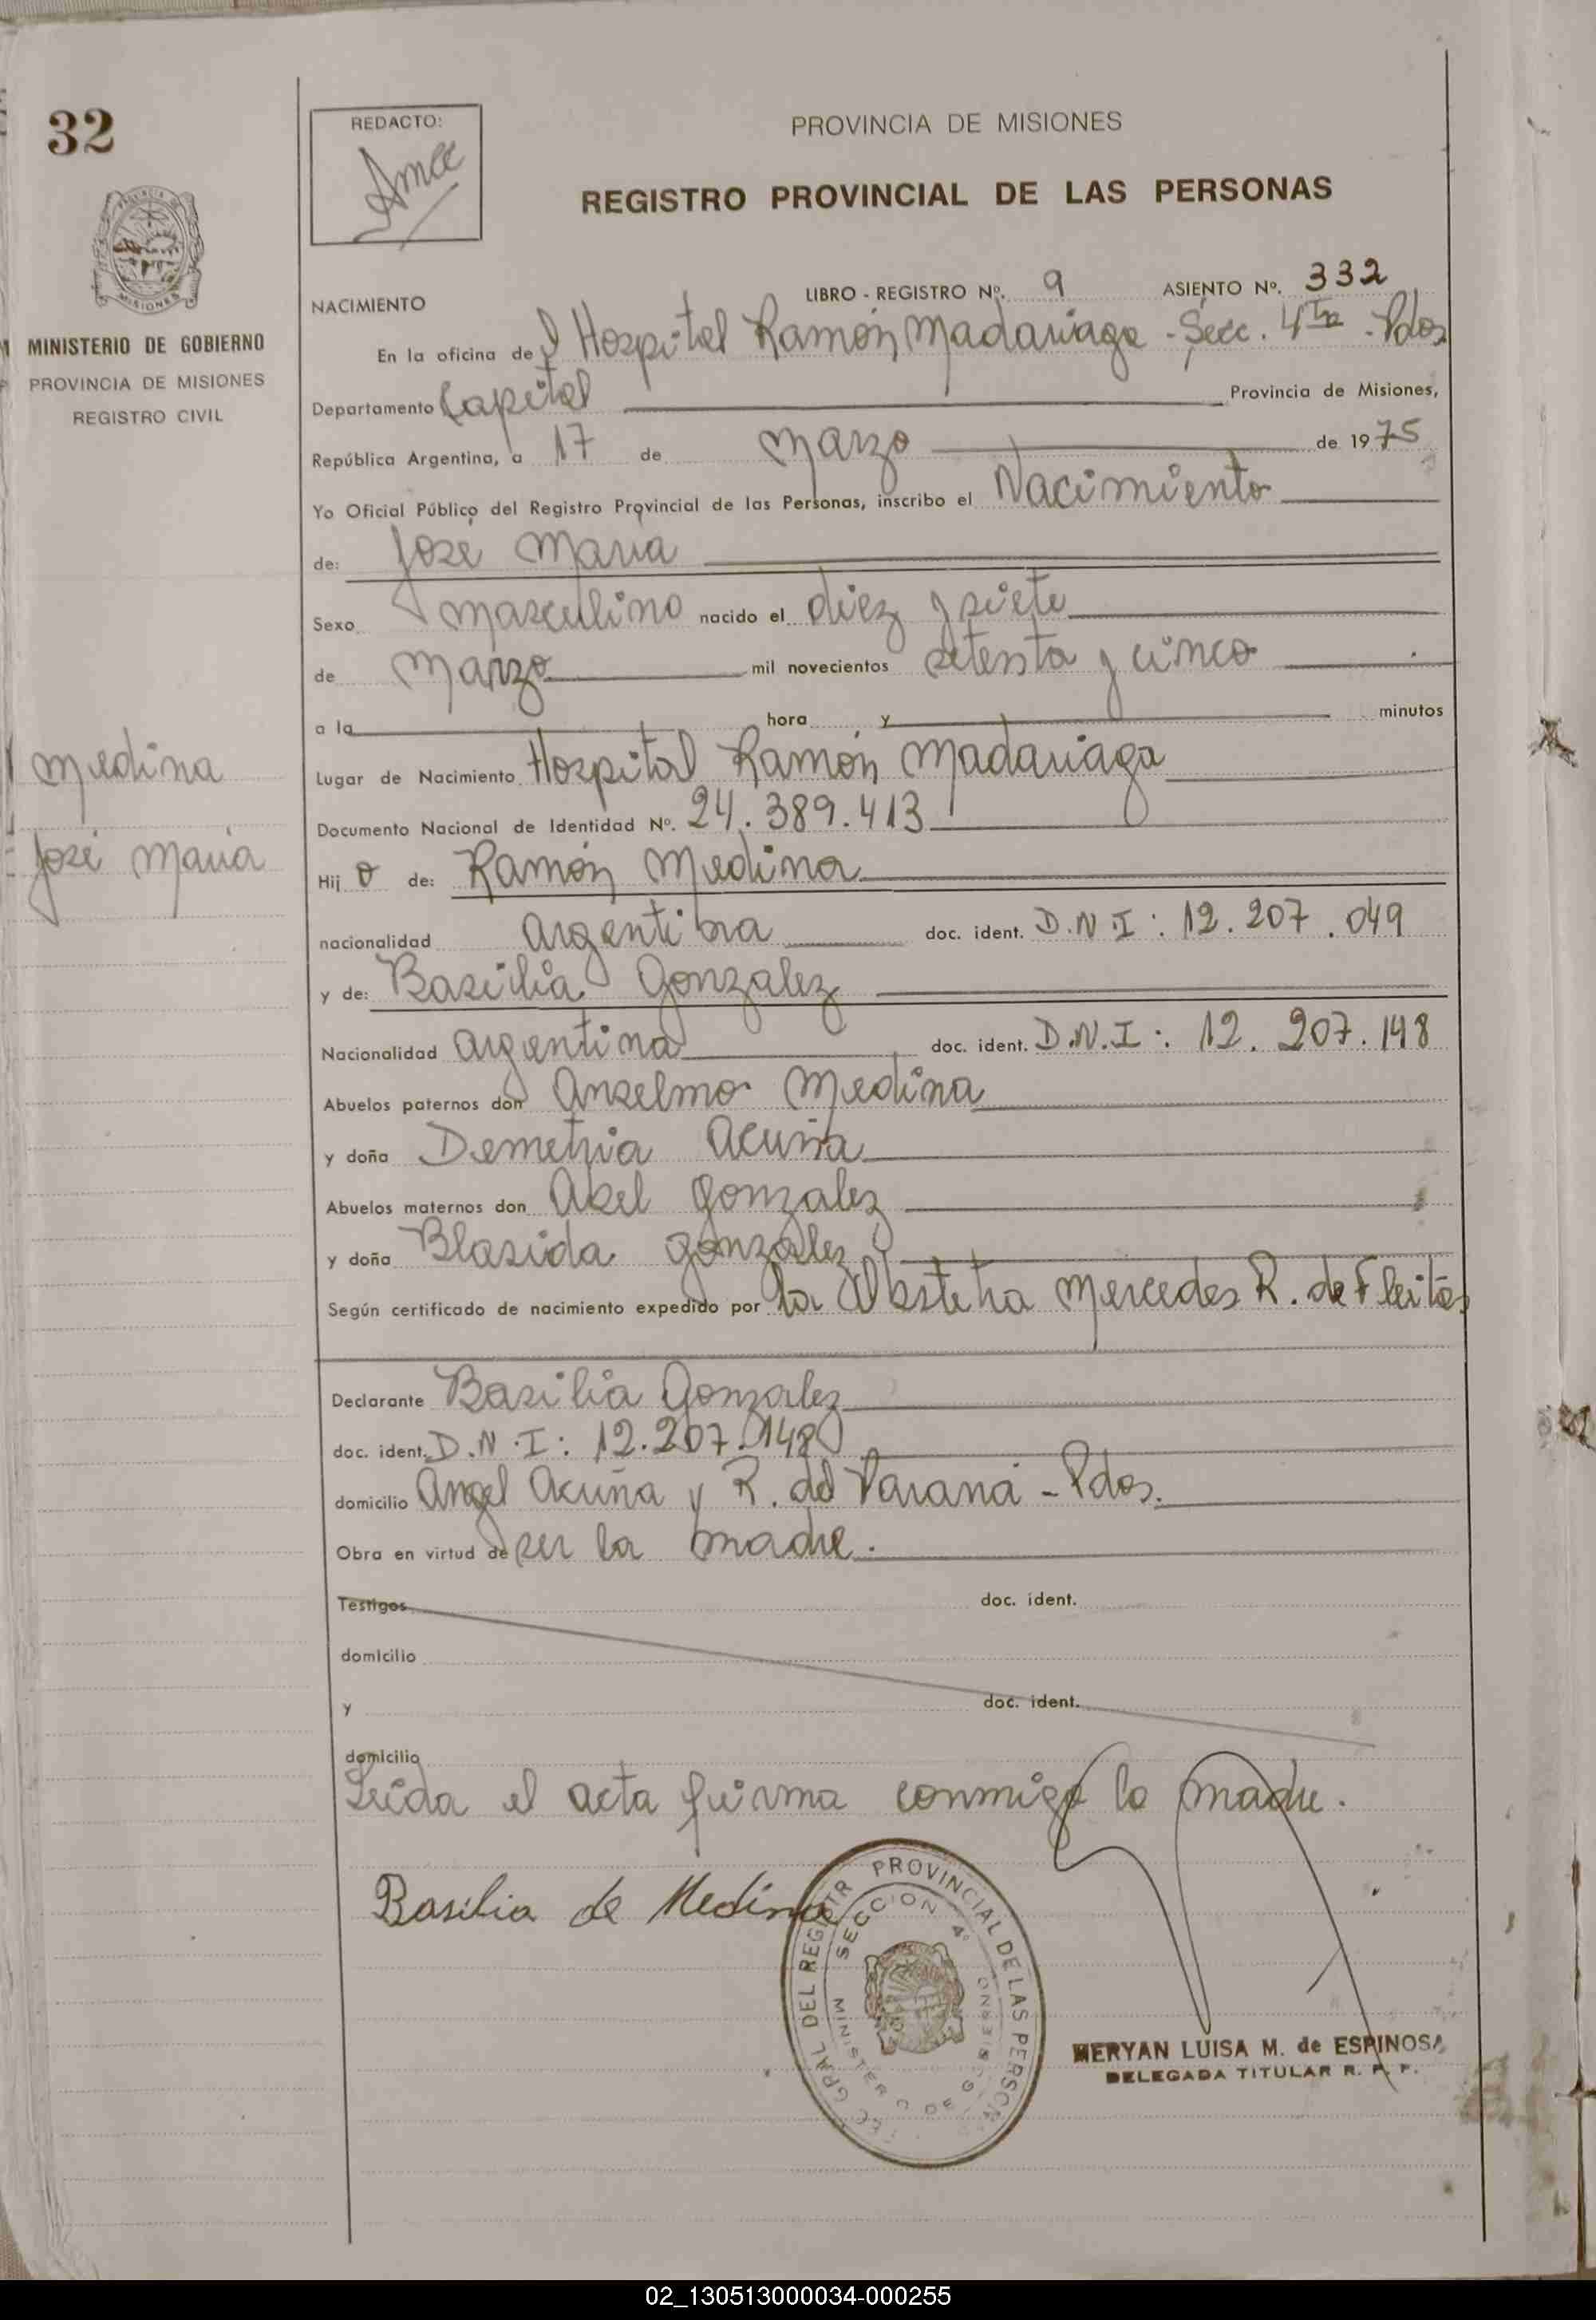 32
REDACTO:
PROVINCIA DE MISIONES
REGISTRO PROVINCIAL DE LAS PERSONAS
MISIONES
MINISTERIO DE GOBIERNO
PROVINCIA DE MISIONES
REGISTRO CIVIL
NACIMIENTO
LIBRO - REGISTRO Nº. 9 ASIENTO Nº. 332
En la oficina del Hospital Ramón Madariaga - Secc. 4ta - Pdos
Departamento Capital Provincia de Misiones,
República Argentina, a 17 de Marzo de 1975
Yo Oficial Público del Registro Provincial de las Personas, inscribo el Nacimiento
de: José Maria
Sexo masculino nacido el diez y siete
de Marzo mil novecientos setenta y cinco
a la hora y minutos
Medina
Lugar de Nacimiento Hospital Ramón Madariaga
Documento Nacional de Identidad Nº. 24.389.413
José Maria
Hijo de: Ramón Medina
nacionalidad argentina doc. ident. D.N.I: 12.207.049
y de: Basilia Gonzalez
Nacionalidad argentina doc. ident. D.N.I: 12.207.148
Abuelos paternos don Anselmo Medina
y doña Demetria Acuña
Abuelos maternos don Abel Gonzalez
y doña Blasida Gonzalez
Según certificado de nacimiento expedido por la Obstetra Mercedes R. de Fleitas
Declarante Basilia Gonzalez
doc. ident. D.N.I: 12.207.148
domicilio Angel Acuña y R. del Paraná - Pdos.
Obra en virtud de ser la madre.
Testigos doc. ident.
domicilio
y doc. ident.
domicilio
Leída el acta firma conmigo la madre.
Basilia de Medina
GRAL DEL REGISTR PROVINCIAL DE LAS PERSON
SECCION 4º
MINISTERIO DE GOBIERNO
MERYAN LUISA M. de ESPINOSA
DELEGADA TITULAR R. P. P.
02_130513000034-000255